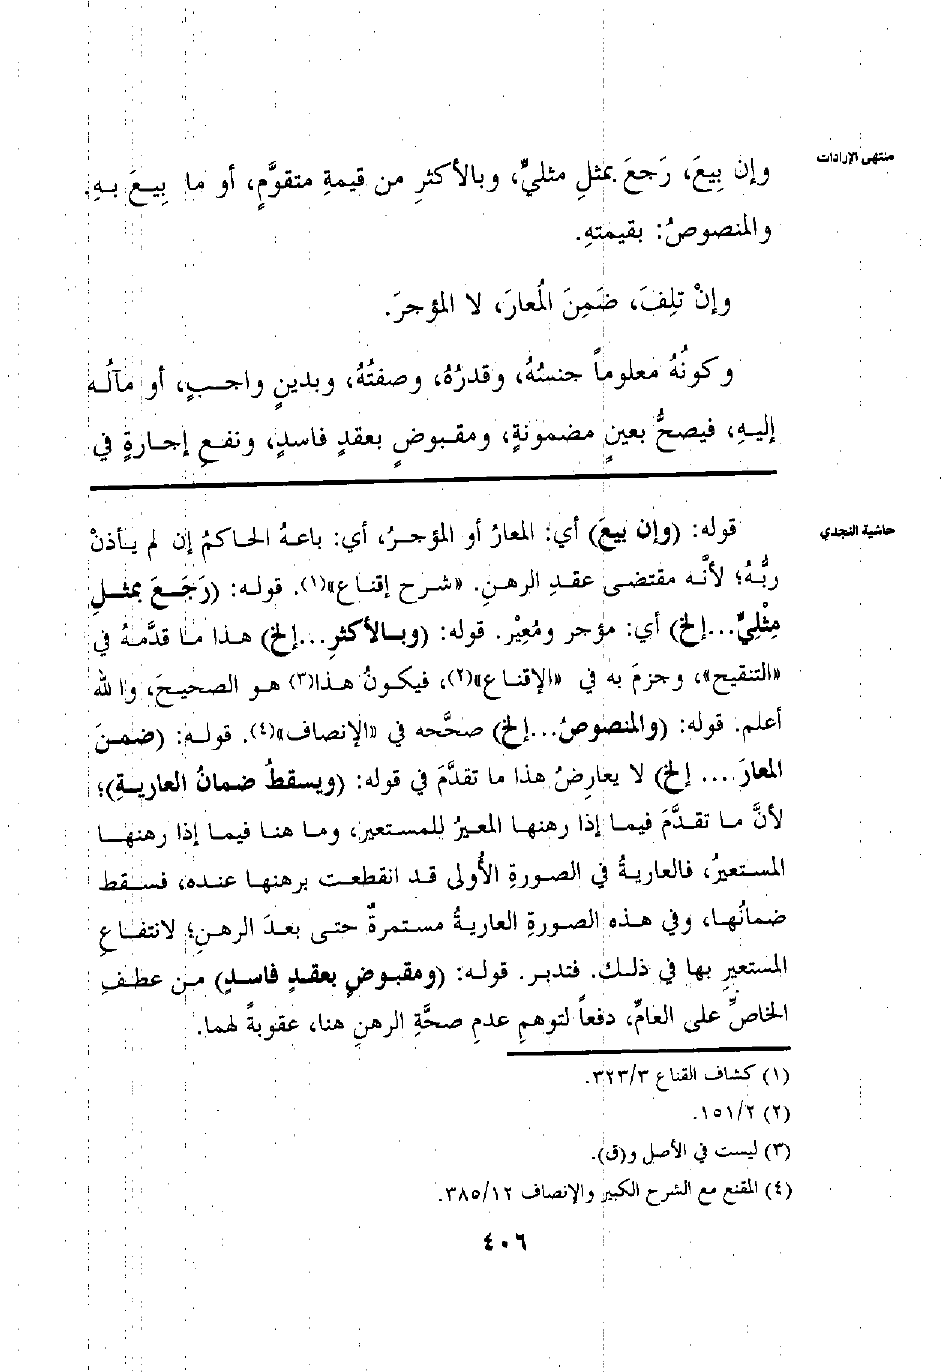 منتهى الإرادات
وإن بِيعَ، رَجَعَ بمثلِ مثليٍّ، وبالأكثرِ من قيمةِ متقوَّمٍ، أو ما بِيعَ بهِ.
والمنصوصُ: بقيمتهِ.
وإنْ تلِفَ، ضَمِنَ المُعارَ، لا المؤجرَ.
وكونُهُ معلوماً جنسُهُ، وقدرُهُ، وصفتُهُ، وبدينٍ واجبٍ، أو مآلُه
إليهِ، فيصحُّ بعينٍ مضمونةٍ، ومقبوضٍ بعقدٍ فاسدٍ، ونفعِ إجارةٍ في
حاشية النجدي
قوله: (وإن بيعَ) أي: المعارُ أو المؤجرُ، أي: باعهُ الحاكمُ إن لم يأذنْ
ربُّهُ؛ لأنَّه مقتضى عقدِ الرهنِ. «شرح إقناع»(١). قوله: (رَجَعَ بمثلِ
مِثْليٍّ...إلخ) أي: مؤجر ومُعِيْر. قوله: (وبالأكثرِ...إلخ) هذا ما قدَّمهُ في
«التنقيح»، وجزمَ به في «الإقناع»(٢)، فيكونُ هذا(٣) هو الصحيحَ، والله
أعلم. قوله: (والمنصوصُ...إلخ) صحَّحه في «الإنصاف»(٤). قوله: (ضمنَ
المعارَ.... إلخ) لا يعارضُ هذا ما تقدَّمَ في قوله: (ويسقطُ ضمانُ العاريةِ)؛
لأنَّ ما تقدَّمَ فيما إذا رهنها المعيرُ للمستعيرِ، وما هنا فيما إذا رهنها
المستعيرُ، فالعاريةُ في الصورةِ الأُولى قد انقطعت برهنها عنده، فسقط
ضمانُها، وفي هذه الصورةِ العاريةُ مستمرةٌ حتى بعدَ الرهنِ؛ لانتفاعِ
المستعيرِ بها في ذلك. فتدبر. قوله: (ومقبوضٍ بعقدٍ فاسدٍ) من عطفِ
الخاصِّ على العامِّ، دفعاً لتوهمِ عدمِ صحَّةِ الرهنِ هنا، عقوبةً لهما.
(١) كشاف القناع ٣٢٣/٣.
(٢) ١٥١/٢.
(٣) ليست في الأصل و(ق).
(٤) المقنع مع الشرح الكبير والإنصاف ٣٨٥/١٢.
٤٠٦